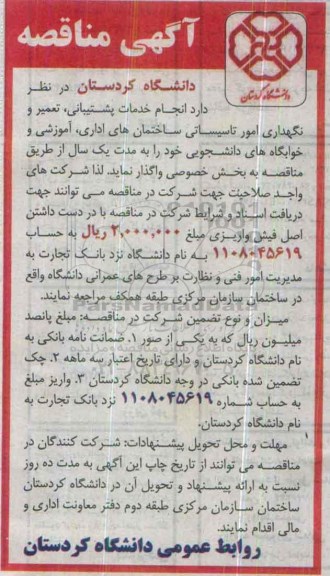 آگهی مناقصه
دانشگاه کردستان
دانشگاه کردستان در نظر
دارد انجام خدمات پشتیبانی، تعمیر و
نگهداری امور تاسیساتی ساختمان های اداری، آموزشی و
خوابگاه های دانشجویی خود را به مدت یک سال از طریق
مناقصه به بخش خصوصی واگذار نماید. لذا شرکت های
واجد صلاحیت جهت شرکت در مناقصه می توانند جهت
دریافت اسناد و شرایط شرکت در مناقصه با در دست داشتن
اصل فیش واریزی مبلغ ۲,۰۰۰,۰۰۰ ریال به حساب
۱۱۰۸۰۴۵۶۱۹ به نام دانشگاه نزد بانک تجارت به
مدیریت امور فنی و نظارت بر طرح های عمرانی دانشگاه واقع
در ساختمان سازمان مرکزی طبقه همکف مراجعه نمایند.
میزان و نوع تضمین شرکت در مناقصه: مبلغ پانصد
میلیون ریال که به یکی از صور ۱. ضمانت نامه بانکی به
نام دانشگاه کردستان و دارای تاریخ اعتبار سه ماهه ۲. چک
تضمین شده بانکی در وجه دانشگاه کردستان ۳. واریز مبلغ
به حساب شماره ۱۱۰۸۰۴۵۶۱۹ نزد بانک تجارت به
نام دانشگاه کردستان.
مهلت و محل تحویل پیشنهادات: شرکت کنندگان در
مناقصه می توانند از تاریخ چاپ این آگهی به مدت ده روز
نسبت به ارائه پیشنهاد و تحویل آن در دانشگاه کردستان
ساختمان سازمان مرکزی طبقه دوم دفتر معاونت اداری و
مالی اقدام نمایند.
روابط عمومی دانشگاه کردستان